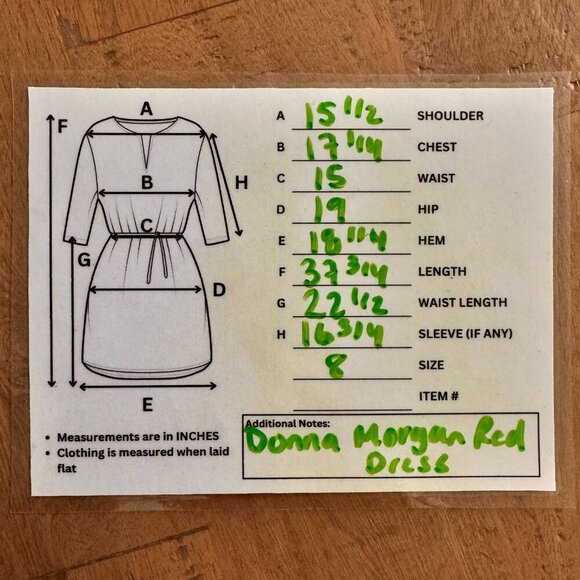 A
F
H
B
C
G
D
E
A 15 1/2 SHOULDER
B 17 3/4 CHEST
C 15 WAIST
D 19 HIP
E 18 1/4 HEM
F 37 3/4 LENGTH
G 22 1/2 WAIST LENGTH
H 16 3/4 SLEEVE (IF ANY)
8 SIZE
ITEM #
• Measurements are in INCHES
• Clothing is measured when laid
flat
Additional Notes:
Donna Morgan Red
Dress